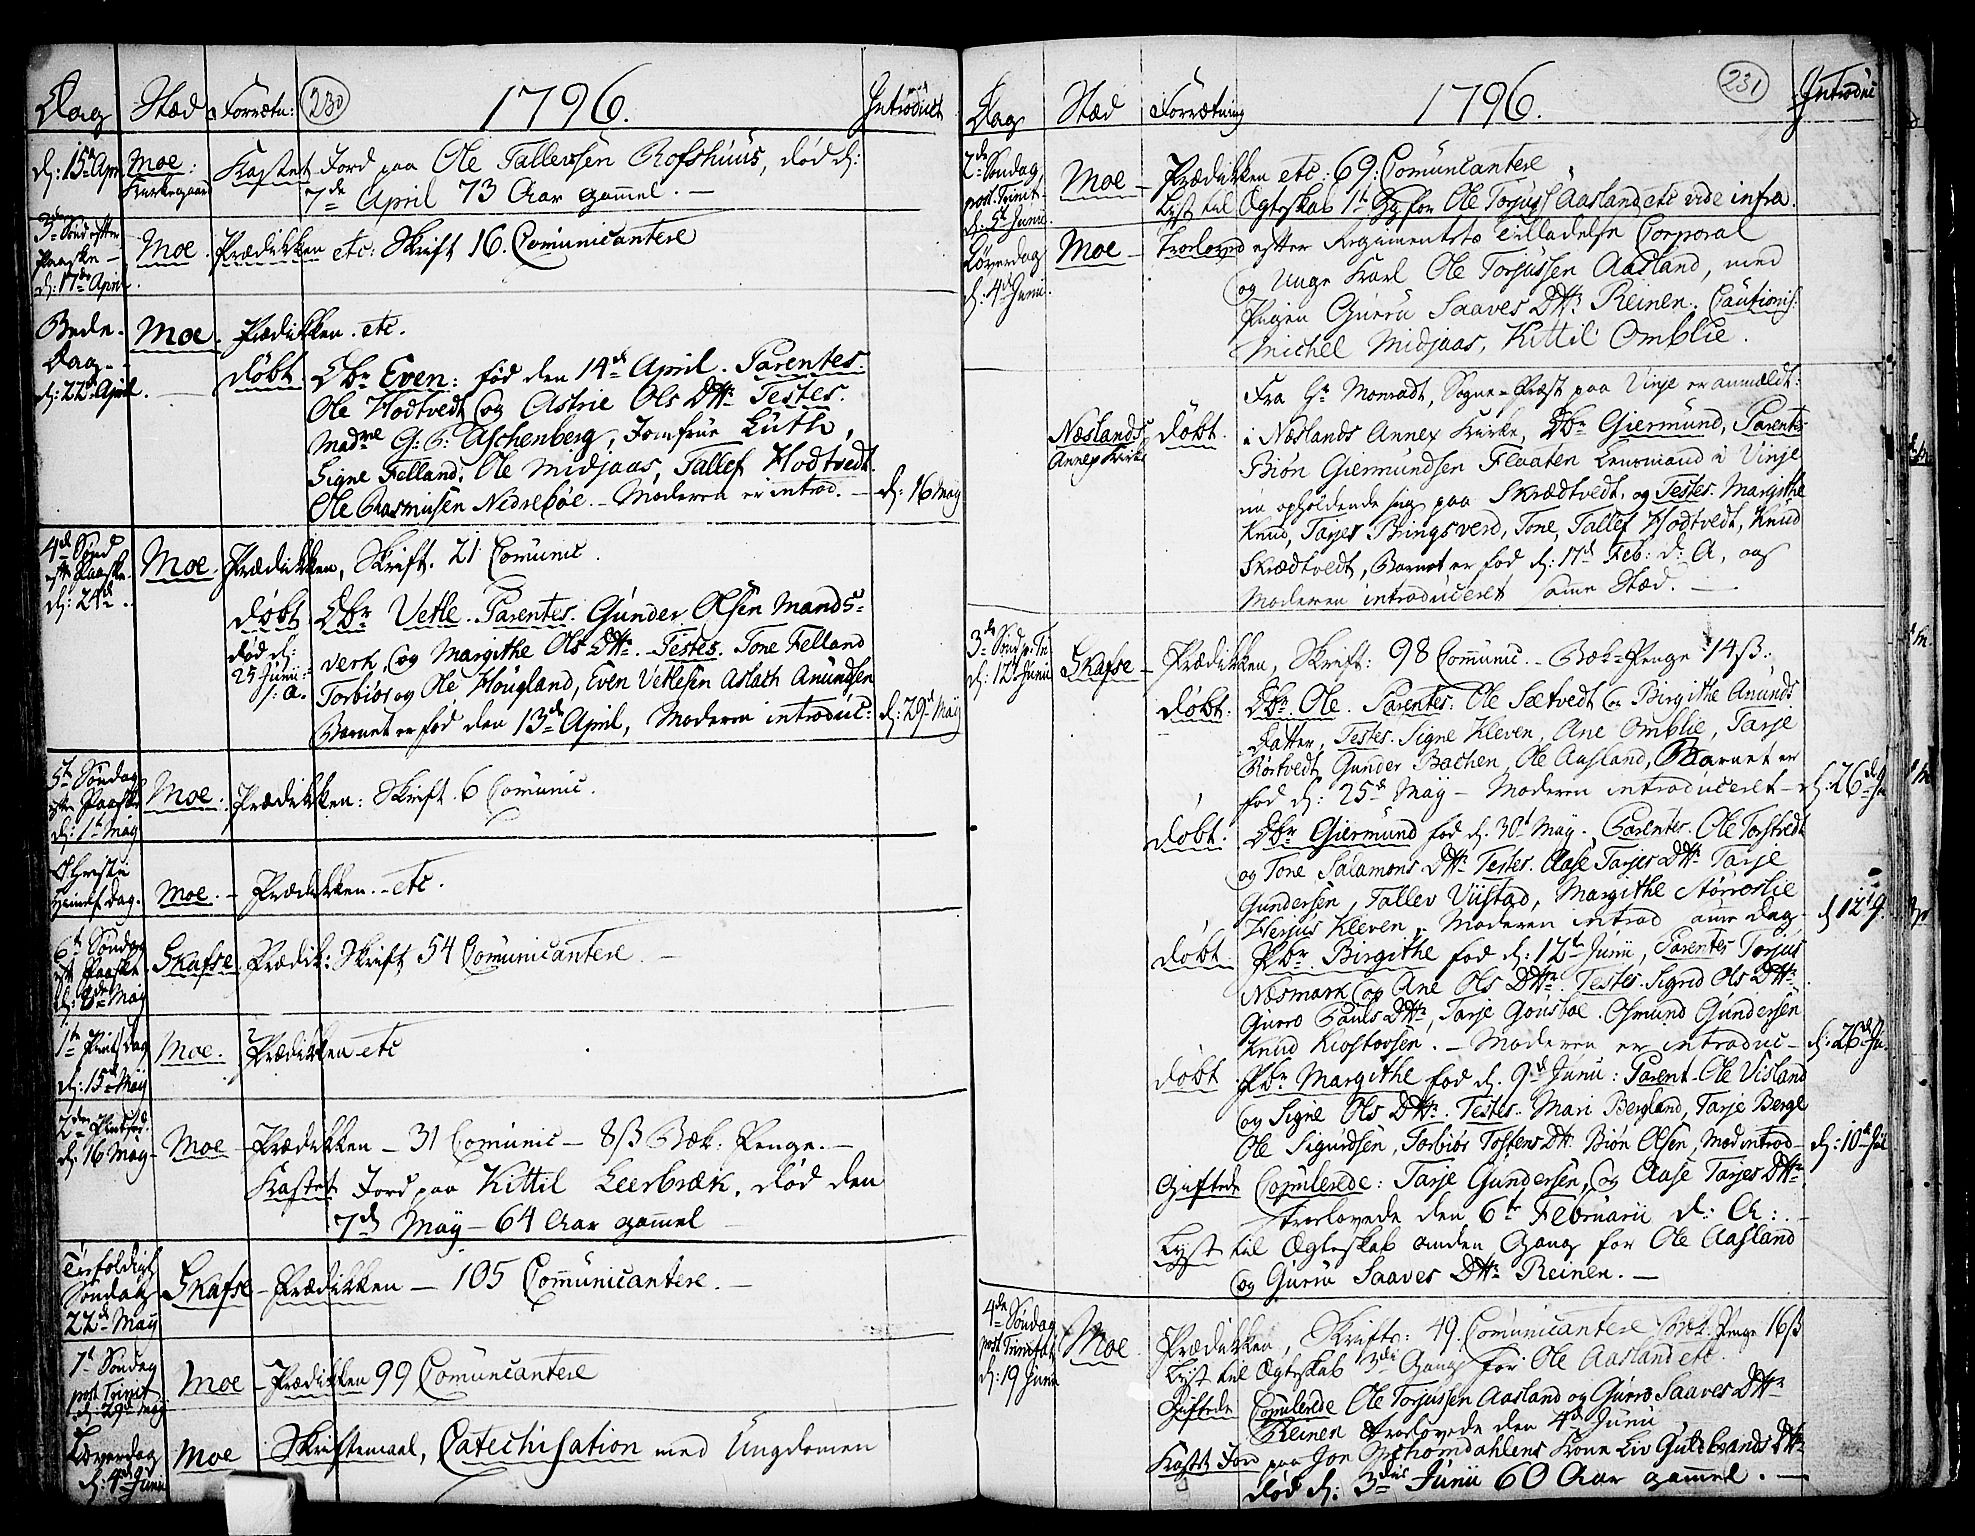 Dag Stæd Forretn: 230 1796. Introduct
d: 15de Apr. Moe: Kirkegaard Kastet Jord paa Ole Tallevsen Rofshuus, død d:
7de April 73 Aar gammel. —
3de Sønd efter Paaske — d: 17de April. Moe. Prædikken etc: Skrift 16. Comunicantere
Bede-
Dag.
d: 22de April. Moe. Prædikken. etc.
døbt Dbr Even: fød den 14de April. Parentes.
Ole Hodtvedt og Astrie Ols Dttr Testes.
Madme G: B: Aschenberg, Jomfrue Lüth,
Signe Felland. Ole Midjaas, Tallef Hodtvedt.
Ole Rasmusen Nedrebøe. — Moderen er introd. — d: 16 May
4de Sønd
eft Paaske.
d: 24de. Moe. Prædikken, Skrift. 21 Comunic.
døbt Dbr Vetle. Parentes. Gunder Olsen Mands-
død d:
25 Junii
s: a. verk og Margithe Ols Dttr. Testes. Tone Felland
Torbiør og Ole Hougland, Even Vetlesen Aslath Anundsen
Barnet er fød den 13de April, Moderen introduc: d: 29de May
5te Søndag
efter Paaske
d: 1te May Moe. Prædikken: Skrift. 6 Comunic.
Christi
Himmelf dag. Moe. — Prædikken. etc.
6te Søndag
eft Paaske
d: 8de May Skafse Prædik: Skrift 54 Comunicantere. —
1te Pintsdag
d: 15de May Moe. Prædikken etc
2den Pintsed.
d. 16 May — Moe — Prædikken — 31 Comunic — 8ß Bæk: Penge. —
Kastet Jord paa Kittil Leerbræk. død den
7de May — 64 Aar gammel —
Trefoldigh
Søndag
22de May Skafse — Prædikken — 105 Communicantere. —
1te Søndag
post Trinit
d: 29de May Moe — Prædikken 99 Comunicantere
Løverdag
d: 4de Junii Moe — Skriftemaal, Catechisation med Ungdomen
Dag Stæd Forretning 1796. 231 Introduc
2de Søndag
post Trinit
d: 5te Junii. Moe — Prædikken etc: 69. Comunicantere
Lyst til Ægteskab 1te Gg for Ole Torjuss Aasland etc vide infra.
Løverdag
d: 4de Junii. Moe — Troloved efter Regimentets Tilladelse Corporal
og Unge Karl Ole Torjussen Aasland, med
Pigen Gurru Saaves Dttr Reinen. Cautionis:
Michel Midjaas, Kittil Omblie.
Fra Hr Monradt, Sogne-Præst paa Vinje er anmældt:
Næslands
Annex Kirke døbt. i Næslands Annex Kirke, Dbr Giermund, Parentes
Biøn Giermundsen Flaaten Lensmand i Vinje
nu opholdende sig paa Skrædtvedt, og Testes. Margithe
Knud, Tarjer Bringsverd, Tone, Tallef Hodtvedt, Knud
Skrædtvedt, Barnet er fød d: 17de Feb: d: A, og
Moderen introduceret samme Stæd. —
3de Sønd p. Tr
d: 12te Junii Skafse — Prædikken, Skrift: 98 Communic. — Bæk-Penge 14ß.
døbt: Dbr Ole. Parentes: Ole Sætvedt og Birgithe Anunds
datter, Testes. Signe Kleven, Ane Omblie, Tarje
Rørtvedt, Gunder Bachen, Ole Aasland, Barnet er
fød d: 25de May — Moderen introduceret — d: 26de Ju
døbt: Dbr Giermund fød d. 30te May. Parentes. Ole Torstvedt
og Tone Salamons Dttr Testes. Aase Tarjes Dttr Tarje
Gundersen, Tallev Viistad, Margithe Størrestie
Herjus Kleven. Moderen introd samme Dag — d 12te J.
døbt. Pbr. Birgithe fød d: 12te Junii, Parentes Torjus
Næsmark og Ane Ols Dttr. Testes. Sigrid Ols Dttr
Gurro Pauls Dttr, Tarje Gousboe. Osmund Gundersen
Knud Kiostovsen. — Moderen er introduc — d: 26de Ju.
døbt Pbr Margithe fød d. 9de Junii: Parent. Ole Visland
og Signe Ols Dttr. Testes. Mari Bergland, Tarje Bergl
Ole Sigurdsen, Torbiør Tostens Dt. Biøn Olsen, Mod introd — d: 10de Jul
Giftede Copulerede: Tarje Gundersen, og Aase Tarjes Dttr
trolovede den 6te Februarii d: A: —
Lyst til Ægteskab anden Gang for Ole Aasland
og Gurru Saaves Dttr Reinen. —
4de Søndag
post Trinitat
d: 19 Junii Moe Prædikken, Skrifte: 49. Comunicantere Bæk. Penge 16ß
Lyst til Ægteskab 3die Gang for Ole Aasland etc
Giftede Copulerede Ole Torjussen Aasland og Gurro Saaves Dttr
Reinen trolovede den 4de Junii
Kast Jord paa Jon Schomdahlens Kone Liv Guldbrands Dttr
død d: 3die Junii 60 Aar gammel. —